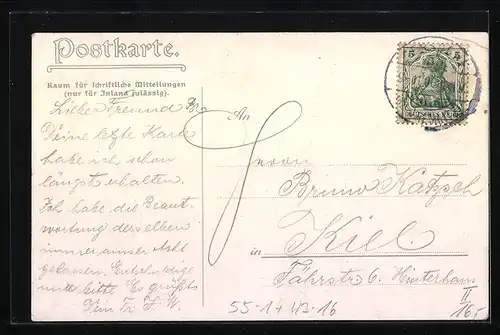 Postkarte.
Raum für schriftliche Mitteilungen
(nur für Inland zulässig).
Lieber Freund
Deine letzte Karte
habe ich schon
längst erhalten.
Ich habe die Beant-
wortung derselben
immer ausser Acht
gelassen. Entschuldige
mich bitte Es grüßt
Dein Fr. F. W.
5 5
DEUTSCHES REICH
An
Herrn
Bruno Katzsch
in Kiel
Fährstr 6. Hinterhaus
II
55-1+ 42-16
16,-